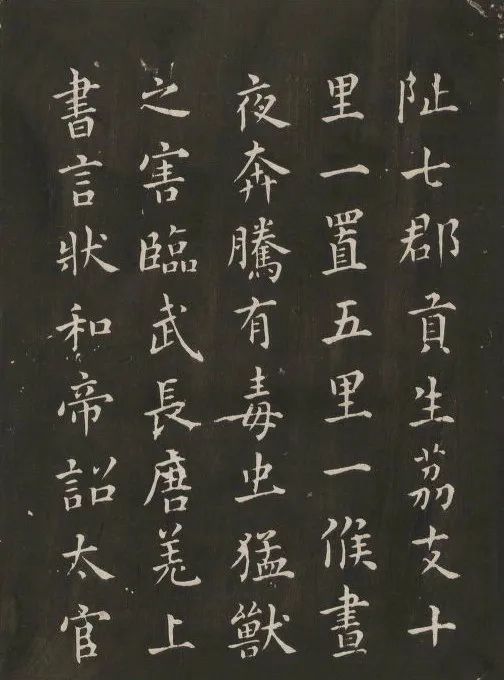 阯七郡貢生茘支十
里一置五里一候晝
夜奔騰有毒虫猛獸
之害臨武長唐羌上
書言狀和帝詔太官